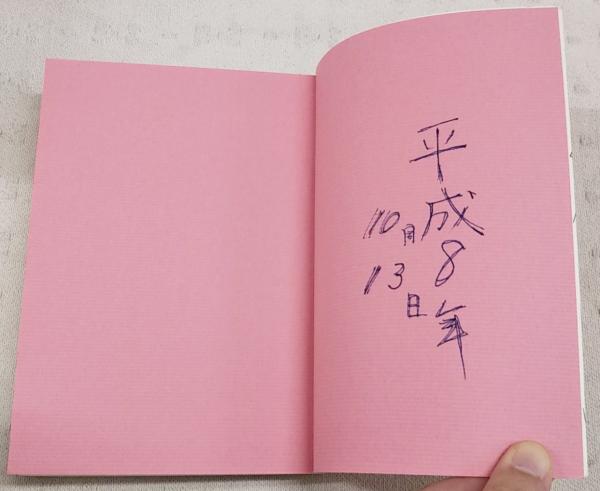 平成8年
10月
13日